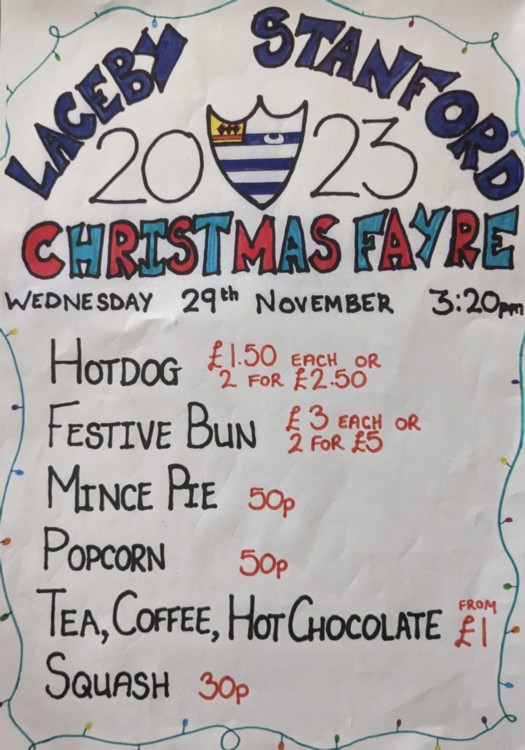 LACEBY STANFORD
2023
CHRISTMAS FAYRE
WEDNESDAY 29th NOVEMBER 3:20pm
HOTDOG £1.50 EACH OR
2 FOR £2.50
FESTIVE BUN £3 EACH OR
2 FOR £5
MINCE PIE 50p
POPCORN 50p
TEA, COFFEE, HOT CHOCOLATE FROM
£1
SQUASH 30p